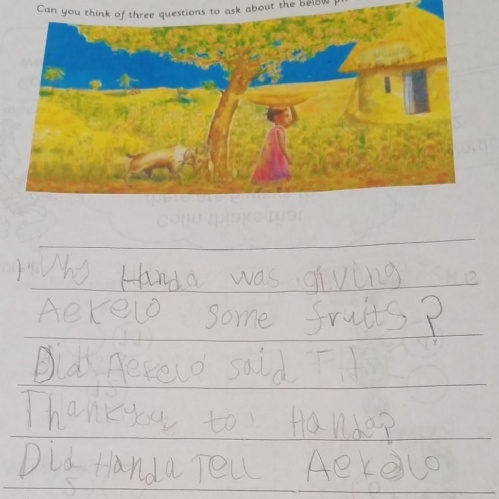 Can you think of three questions to ask about the below
1) Why Handa was giving
Aekelo some fruits?
Did Aekelo said
Thankyou to Handa?
Did Handa Tell Aekelo